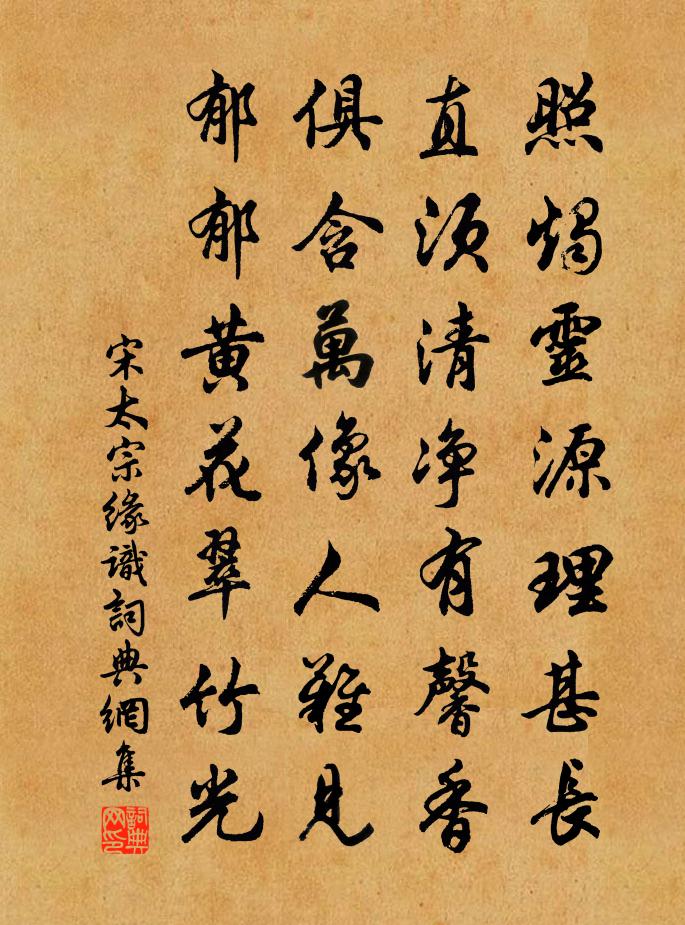 照燭靈源理甚長
直須清净有馨香
俱含萬像人難見
郁郁黄花翠竹光
宋太宗緣識詞典網集
詞典网印